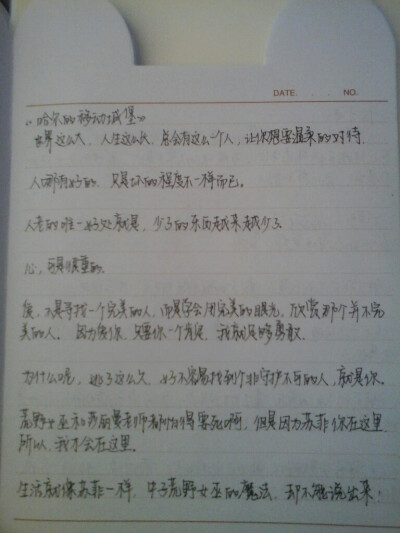 DATE. . . NO.
《哈尔的移动城堡》
世界这么大，人生这么长，总会有这么一个人，让你想要温柔的对待.
人哪有好的，只是坏的程度不一样而已。
人老的唯一好处就是，少了的东西越来越少了
心，可是很重的.
爱，不是寻找一个完美的人，而是学会用完美的眼光，欣赏那个并不完
美的人。因为爱你，只要你一个肯定，我就足够勇敢.
为什么呢，逃了这么久，好不容易找到个非守护不可的人，就是你.
荒野女巫和莎丽曼老师都怕得要死啊，但是因为苏菲你在这里
所以，我才会在这里.
生活就像苏菲一样，中了荒野女巫的魔法，却不能说出来！